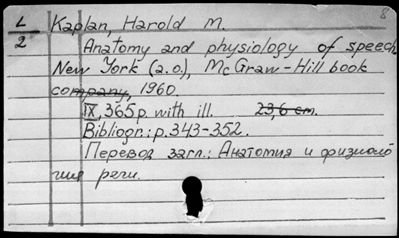 8
L Kaplan, Harold M.
2 Anatomy and physiology of speech.
New York (a.o.), McGraw-Hill book
company, 1960.
IX, 365 p. with ill. 23,6 cm.
Bibliogr.: p. 343-352.
Перевод загл.: Анатомия и физиоло
гия речи.